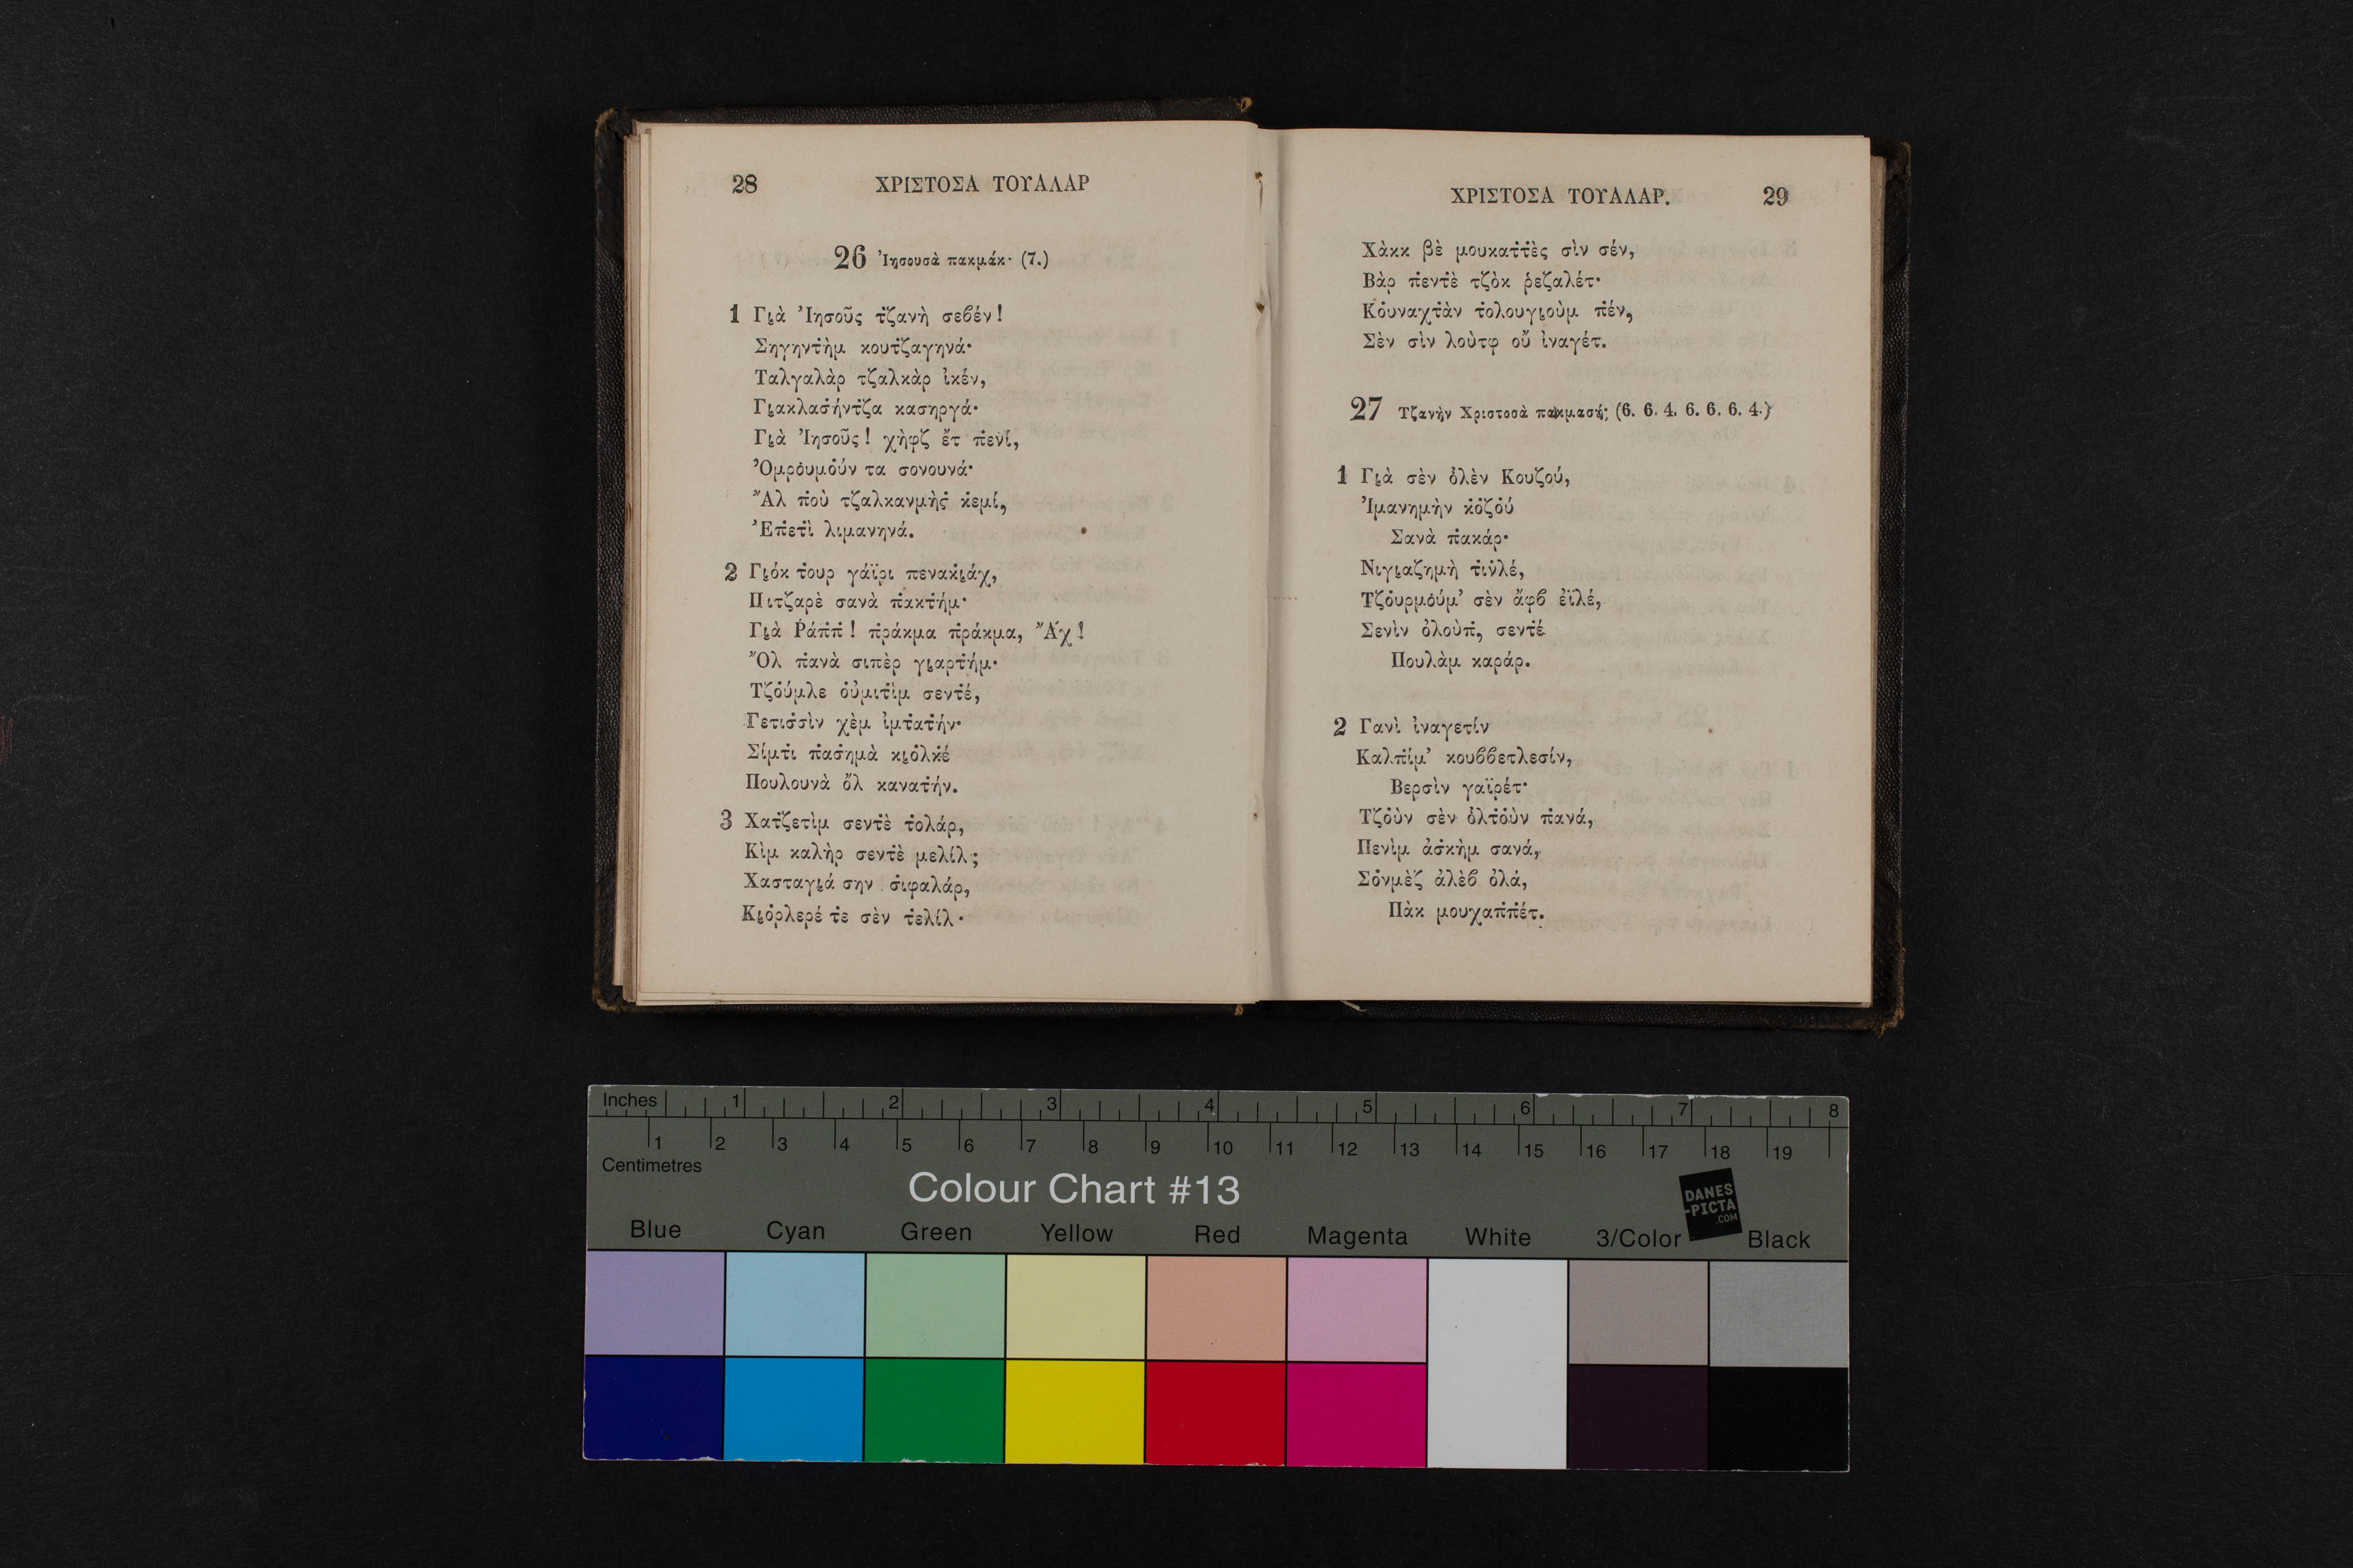 28 ΧΡΙΣΤΟΣΑ ΤΟΥΑΛΑΡ
26 Ἰησουσὰ πακμάκ· (7.)
1 Γι̮ὰ Ἰησοῦς τ̇ζανὴ σεβέν!
Σηγηντ̇ὴμ κουτ̇ζαγηνά·
Ταλγαλὰρ τζαλκὰρ ἰκέν,
Γι̮ακλασ̇ήντ̇ζα κασηργά·
Γι̮ὰ Ἰησοῦς! χὴφζ ἔτ π̇ενί,
Ὀμρο̇υμο̇ύν τα σονουνά·
Ἄλ π̇οὺ τζαλκανμὴς̇ κ̇εμί,
Ἐπ̇ετ̇ὶ λιμανηνά.
2 Γι̮όκ τ̇ουρ γάϊρι πενακι̮άχ,
Πιτζαρὲ σανὰ π̇ακτ̇ήμ·
Γι̮ὰ Ῥάπ̇π̇! π̇ράκμα π̇ράκμα, Ἄχ!
Ὄλ π̇ανὰ σιπὲρ γι̮αρτ̇ήμ·
Τζο̇ύμλε ο̇ὐμιτ̇ὶμ σεντ̇έ,
Γετισ̇σὶν χὲμ ἰμτ̇ατ̇ήν·
Σίμτ̇ι π̇ασ̇ημὰ κι̮ο̇λκ̇έ
Πουλουνὰ ὄλ κανατ̇ήν.
3 Χατ̇ζετὶμ σεντ̇ὲ τ̇ολάρ,
Κὶμ καλὴρ σεντ̇ὲ μελίλ;
Χασταγι̮ά σην σ̇ιφαλάρ,
Κι̮ο̇ρλερέ τ̇ε σὲν τ̇ελίλ·
ΧΡΙΣΤΟΣΑ ΤΟΥΑΛΑΡ. 29
Χὰκκ βὲ μουκατ̇τ̇ὲς σὶν σέν,
Βὰρ π̇εντ̇ὲ τζὸκ ῥεζαλέτ·
Κο̇υναχτ̇ὰν τ̇ολουγι̮οὺμ π̇έν,
Σὲν σὶν λοὺτφ οὔ ἰναγέτ.
27 Τζανὴν Χριστοσὰ πακμασή; (6. 6. 4. 6. 6. 6. 4.)
1 Γι̮ὰ σὲν ὀλὲν Κουζού,
Ἰμανημὴν κ̇ο̇ζο̇ύ
Σανὰ π̇ακάρ·
Νιγι̮αζημὴ τ̇ιν̇λέ,
Τζο̇υρμο̇ύμ' σὲν ἄφβ ἐϊλέ,
Σενὶν ὀλοὺπ̇, σεντ̇έ
Πουλὰμ καράρ.
2 Γανὶ ἰναγετίν
Καλπ̇ίμ' κουββετλεσίν,
Βερσὶν γαϊρέτ·
Τζο̇ὺν σὲν ὀλτ̇ο̇ὺν π̇ανά,
Πενὶμ ἀσ̇κὴμ σανά,
Σο̇νμὲζ ἀλὲβ ὀλά,
Πὰκ μουχαπ̇π̇έτ.
Inches 1 2 3 4 5 6 7 8
1 2 3 4 5 6 7 8 9 10 11 12 13 14 15 16 17 18 19
Centimetres
Colour Chart #13
DANES
-PICTA
.COM
Blue Cyan Green Yellow Red Magenta White 3/Color Black